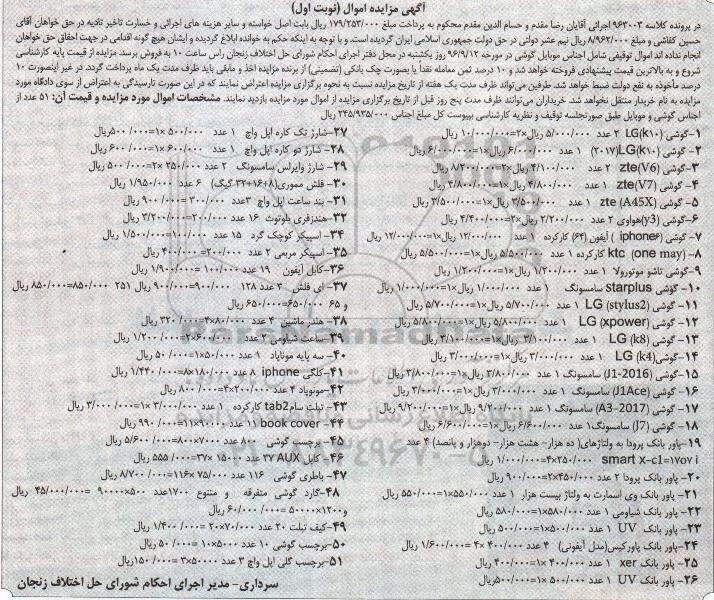 آگهی مزایده اموال (نوبت اول)
در پرونده کلاسه ۹۶۳۰۰۳ اجرائی آقایان رضا مقدم و حسام الدین مقدم محکوم به پرداخت مبلغ ۱۷۹/۲۵۳/۰۰۰ ریال بابت اصل خواسته و سایر هزینه های اجرائی و خسارت تاخیر تادیه در حق خواهان آقای
حسین کفاشی و مبلغ ۸/۹۶۲/۰۰۰ ریال نیم عشر دولتی در حق دولت جمهوری اسلامی ایران گردیده است. و با توجه به اینکه حکم به خوانده ابلاغ گردیده و ایشان هیچ گونه اقدامی در جهت احقاق حق خواهان
انجام نداده اند اموال توقیفی شامل اجناس موبایل گوشی در مورخه ۹۶/۹/۱۲ روز یکشنبه در محل دفتر اجرای احکام شورای حل اختلاف زنجان راس ساعت ۱۰ به فروش برسد. مزایده از قیمت پایه کارشناسی
شروع و به بالاترین قیمت پیشنهادی فروخته خواهد شد و ۱۰ درصد ثمن معامله نقداً یا بصورت چک بانکی (تضمینی) از برنده مزایده اخذ و مابقی باید ظرف مدت یک ماه پرداخت گردد. در غیر اینصورت ۱۰
درصد مأخوذه به نفع دولت ضبط خواهد شد. طرفین می‌تواند ظرف مدت یک هفته از تاریخ مزایده نسبت به نحوه برگزاری مزایده اعتراض نمایند که در این صورت تارسیدگی به اعتراض از سوی دادگاه مورد
مزایده به نام خریدار منتقل نخواهد شد. خریداران می‌توانند ظرف مدت پنج روز قبل از تاریخ برگزاری مزایده از اموال مورد مزایده بازدید نمایند. مشخصات اموال مورد مزایده و قیمت آن: ۵۱ عدد از
اجناس گوشی و موبایل طبق صورتجلسه توقیف و نظریه کارشناسی بپیوست کل مبلغ اجناس ۲۴۵/۹۳۵/۰۰۰ ریال.
۱-گوشی LG(k10) ۲ عدد ۵/۰۰۰/۰۰۰ ریال×۲=۱۰/۰۰۰/۰۰۰ ریال
۲- گوشی LG(k10)(۲۰۱۷) ۱ عدد ۶/۰۰۰/۰۰۰ ریال×۱=۶/۰۰۰/۰۰۰ ریال
۳-گوشی zte(V6) ۲ عدد ۴/۱۰۰/۰۰۰ ریال×۲=۸/۲۰۰/۰۰۰ ریال
۴- گوشی zte(V7) ۱ عدد ۴/۸۰۰/۰۰۰ ریال×۱=۴/۸۰۰/۰۰۰ ریال
۵- گوشی zte (A45X) ۱ عدد ۳/۵۰۰/۰۰۰ ریال×۱=۳/۵۰۰/۰۰۰ ریال
۶-گوشی (y3)هواوی ۲ عدد ۲/۲۰۰/۰۰۰ ریال×۲=۴/۴۰۰/۰۰۰ ریال
۷- گوشی iphone۶ ) آیفون (۶۴) کارکرده ۱ عدد ۱۲/۰۰۰/۰۰۰ ریال×۱=۱۲/۰۰۰/۰۰۰ ریال
۸- ktc (one may) کارکرده ۱ عدد ۵/۵۰۰/۰۰۰ ریال×۱=۵/۵۰۰/۰۰۰ ریال
۹-گوشی تاشو موتورولا ۱ عدد ۱/۲۰۰/۰۰۰ ریال×۱=۱/۲۰۰/۰۰۰ ریال
۱۰- گوشی starplus سامسونگ ۱ عدد ۱/۰۰۰/۰۰۰ ریال×۱=۱/۰۰۰/۰۰۰ ریال
۱۱- گوشی LG (stylus2) ۱ عدد ۵/۷۰۰/۰۰۰ ریال×۱=۵/۷۰۰/۰۰۰ ریال
۱۲- گوشی LG (xpower) ۱ عدد ۵/۸۰۰/۰۰۰ ریال×۱=۵/۸۰۰/۰۰۰ ریال
۱۳- گوشی LG (k8) ۱ عدد ۳/۱۰۰/۰۰۰ ریال×۱=۳/۱۰۰/۰۰۰ ریال
۱۴- گوشی LG (k4) ۱ عدد ۳/۰۰۰/۰۰۰ ریال×۱=۳/۰۰۰/۰۰۰ ریال
۱۵- گوشی (J1-2016) سامسونگ ۱ عدد ۳/۸۰۰/۰۰۰ ریال×۱=۳/۸۰۰/۰۰۰ ریال
۱۶- گوشی (J1Ace) سامسونگ ۱ عدد ۳/۰۰۰/۰۰۰ ریال×۱=۳/۰۰۰/۰۰۰ ریال
۱۷- گوشی (A3-2017) سامسونگ ۱ عدد ۹/۲۰۰/۰۰۰ ریال×۱=۹/۲۰۰/۰۰۰ ریال
۱۸- گوشی (J7) سامسونگ۱ عدد ۶/۶۰۰/۰۰۰ ریال×۱=۶/۶۰۰/۰۰۰ ریال
۱۹-پاور بانک پرودا به ولتاژهای( ده هزار- هشت هزار- دوهزار و پانصد) ۴ عدد
smart x-c1=۱۷۰۷ i ۴×۲۵۰/۰۰۰=۱/۰۰۰/۰۰۰ ریال
۲۰- پاور بانک پرودا ۲ عدد ۴۵۰/۰۰۰×۲=۹۰۰/۰۰۰ ریال
۲۱- پاور بانک وی اسمارت به ولتاژ بیست هزار ۱ عدد ۵۵۰/۰۰۰×۱=۵۵۰/۰۰۰ ریال
۲۲- پاور بانک شیاومی ۱ عدد ۵۸۰/۰۰۰×۱=۵۸۰/۰۰۰ ریال
۲۳- پاور بانک UV ۱ عدد ۵۰۰/۰۰۰×۱=۵۰۰/۰۰۰ ریال
۲۴-پاور بانک پاورکیس(مدل آیفونی) ۴ عدد ۴۰۰/۰۰۰ ×۴=۱/۶۰۰/۰۰۰ ریال
۲۵- پاور بانک xer ۱ عدد ۴۰۰/۰۰۰ ×۱=۴۰۰/۰۰۰ ریال
۲۶- پاور بانک UV ۱ عدد ۵۰۰/۰۰۰ ×۱=۵۰۰/۰۰۰ریال
۲۷-شارژ تک کاره اپل واچ ۱ عدد ۵۰۰/۰۰۰ ×۱=۵۰۰/۰۰۰ریال
۲۸- شارژ دو کاره اپل واچ ۱ عدد ۶۰۰/۰۰۰ ×۱=۶۰۰/۰۰۰ ریال
۲۹- شارژ وایرلس سامسونگ ۲ عدد ۲۵۰/۰۰۰ ×۲=۵۰۰/۰۰۰ ریال
۳۰- فلش مموری(۸+۱۶+۳۲ گیگ) ۶ عدد ۱/۹۵۰/۰۰۰ ریال
۳۱- بند ساعت اپل واچ ۳عدد ۳۰۰/۰۰۰=۹۰۰/۰۰۰ ریال
۳۲-هندزفری بلوتوث ۱۶ عدد ۲۰۰/۰۰۰=۳/۲۰۰/۰۰۰ ریال
۳۴- اسپیکر کوچک گرد ۱۵ عدد ۱۰۰/۰۰۰=۱/۵۰۰/۰۰۰ ریال
۳۵- اسپیکر مربعی ۲ عدد ۲۰۰/۰۰۰=۴۰۰/۰۰۰ ریال
۳۶-کابل آیفون ۱۹ عدد ۱۰۰/۰۰۰=۱/۹۰۰/۰۰۰ ریال
۳۷- ای فلش ۳ عدد ۱۲۸ ۹۰۰/۰۰۰=۹۰۰/۰۰۰ ریال ۲۵۱ ۸۵۰/۰۰۰=۸۵۰/۰۰۰ ریال
و ۶۵ ۶۵۰/۰۰۰=۶۵۰/۰۰۰ ریال
۳۸- هلدر ماشین ۴ عدد ۸۰/۰۰۰×۴=۳۲۰/۰۰۰ ریال
۳۹- ساعت شیاومی ۲ عدد ۶۰۰/۰۰۰×۲=۱/۲۰۰/۰۰۰ ریال
۴۰- سه پایه موناپاد ۱ عدد ۵۰/۰۰۰×۱=۵۰/۰۰۰ ریال
۴۱-کلگی iphone ۸ عدد ۱۸۰/۰۰۰×۸=۱/۴۴۰/۰۰۰ ریال
۴۲-مونوپاد ۴ عدد ۲۰۰/۰۰۰×۴=۸۰۰/۰۰۰ ریال
۴۳- تبلت سامtab2 کارکرده ۱ عدد ۳/۰۰۰/۰۰۰ ×۱=۳/۰۰۰/۰۰۰ ریال
۴۴- book cover ۱۱ عدد ۹۰/۰۰۰×۱۱=۹۹۰/۰۰۰ ریال
۴۵- برچسب گوشی ۸۰۰ عدد ۷۰۰۰×۸۰۰=۵/۶۰۰/۰۰۰ ریال
۴۶- کابل AUX ۳۷ عدد ۱۵۰۰۰ ×۳۷=۵۵۵/۰۰۰ ریال
۴۷- باطری گوشی ۱۱۶ عدد ۷۵/۰۰۰ ×۱۱۶=۸/۷۰۰/۰۰۰ ریال
۴۸-گارد گوشی متفرقه و متنوع ۱۷۰۰عدد ۵۰۰×۹۰۰۰۰=۴۵/۰۰۰/۰۰۰ ریال
و ۱۲۰۰×۵۰۰۰۰=۶۰/۰۰۰/۰۰۰ ریال
۴۹-کیف تبلت ۲۰ عدد ۷۰/۰۰۰×۲۰=۱/۴۰۰/۰۰۰ ریال
۵۰-برچسب گوشی ۱۰ عدد ۵۰۰۰×۱۰=۵۰/۰۰۰ ریال
۵۱-برچسب گلی اپل واچ ۳ عدد ۵۰۰۰۰×۳=۱۵۰/۰۰۰ریال
سرداری- مدیر اجرای احکام شورای حل اختلاف زنجان